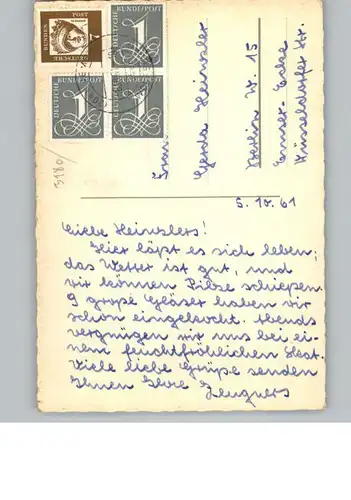 DEUTSCHE
BUNDES
POST
DEUTSCHE BUNDESPOST
1
DEUTSCHE BUNDESPOST
1
DEUTSCHE BUNDESPOST
1
3180/
Frau
Gerda Heinzler
Berlin W. 15
Emser- Ecke
Düsseldorfer Str.
5. 10. 61
Liebe Heinzlers!
Hier läßt es sich leben;
das Wetter ist gut, und
wir können Pilze schießen.
9 große Gläser haben wir
schon eingekocht. Abends
vergnügen wir uns bei ei-
nem feuchtfröhlichen Skat.
Viele liebe Grüße senden
Ihnen Ihre